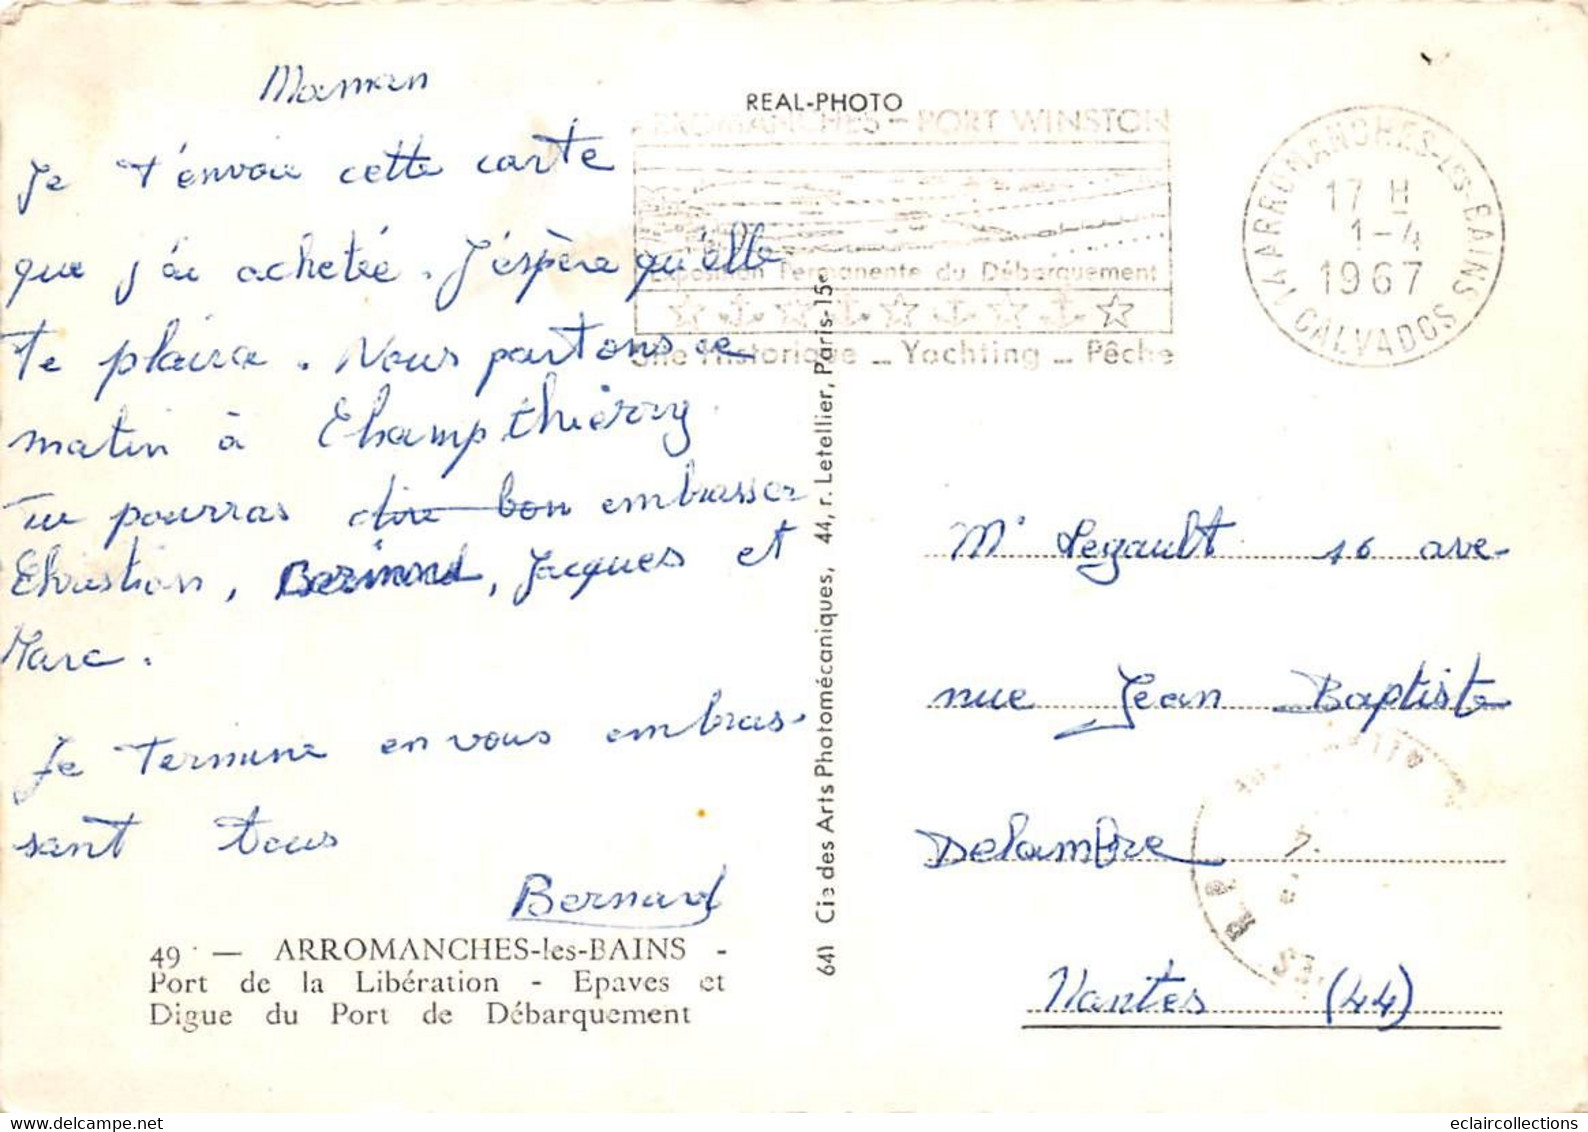 Maman
Je t'envoie cette carte
que j'ai achetée. J'éspère qu'elle
te plaira. Nous partons ce
matin à Champthiérry
Tu pourras dire bon embrasser
Christian, Bernard, Jacques et
Marc.
Je termine en vous embras-
sant tous
Bernard
49 — ARROMANCHES-les-BAINS -
Port de la Libération - Epaves et
Digue du Port de Débarquement
REAL-PHOTO
ARROMANCHES - PORT WINSTON
Exposition Permanente du Débarquement
Site Historique _ Yachting _ Pêche
14 ARROMANCHES-les-BAINS
17 H
1-4
1967
CALVADOS
641 Cie des Arts Photomécaniques, 44, r. Letellier, Paris-15e
Mr Legault 16 ave-
nue Jean Baptiste
Delambre
Nantes (44)
eclaircollections